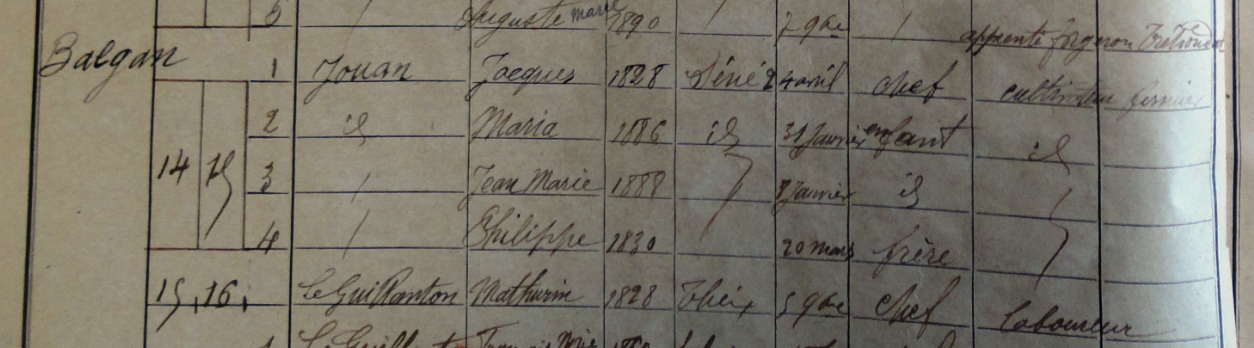 5 / Auguste Marie 1890 / 7 9bre / apprenti forgeron
Balgan
1 Jouan Jacques 1828 Séné 24 avril chef cultivateur fermier
2 id Maria 1886 id 31 Janvier enfant id
14 15 3 / Jean Marie 1888 8 Janvier id /
4 / Philippe 1830 20 mars frère
15 16 1 Le Guillanton Mathurin 1828 Theix 5 9bre chef laboureur